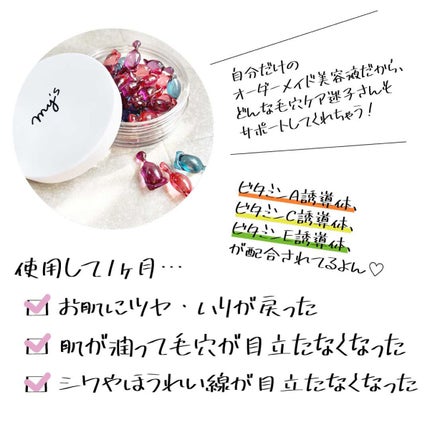 my's
自分だけの
オーダーメイド美容液だから、
どんな毛穴ケア迷子さんも
サポートしてくれちゃう！
ビタミンA誘導体、
ビタミンC誘導体、
ビタミンE誘導体、
が配合されてるよん♡
使用して1ヶ月…
お肌にツヤ・ハリが戻った
肌が潤って毛穴が目立たなくなった
シワやほうれい線が目立たなくなった